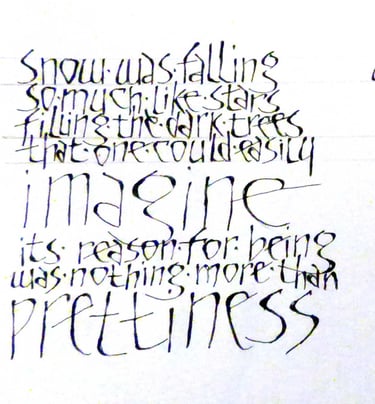 snow·was·falling
so·much·like·stars
filling·the·dark·trees
that·one·could·easily
imagine
its·reason·for·being
was·nothing·more·than
prettiness